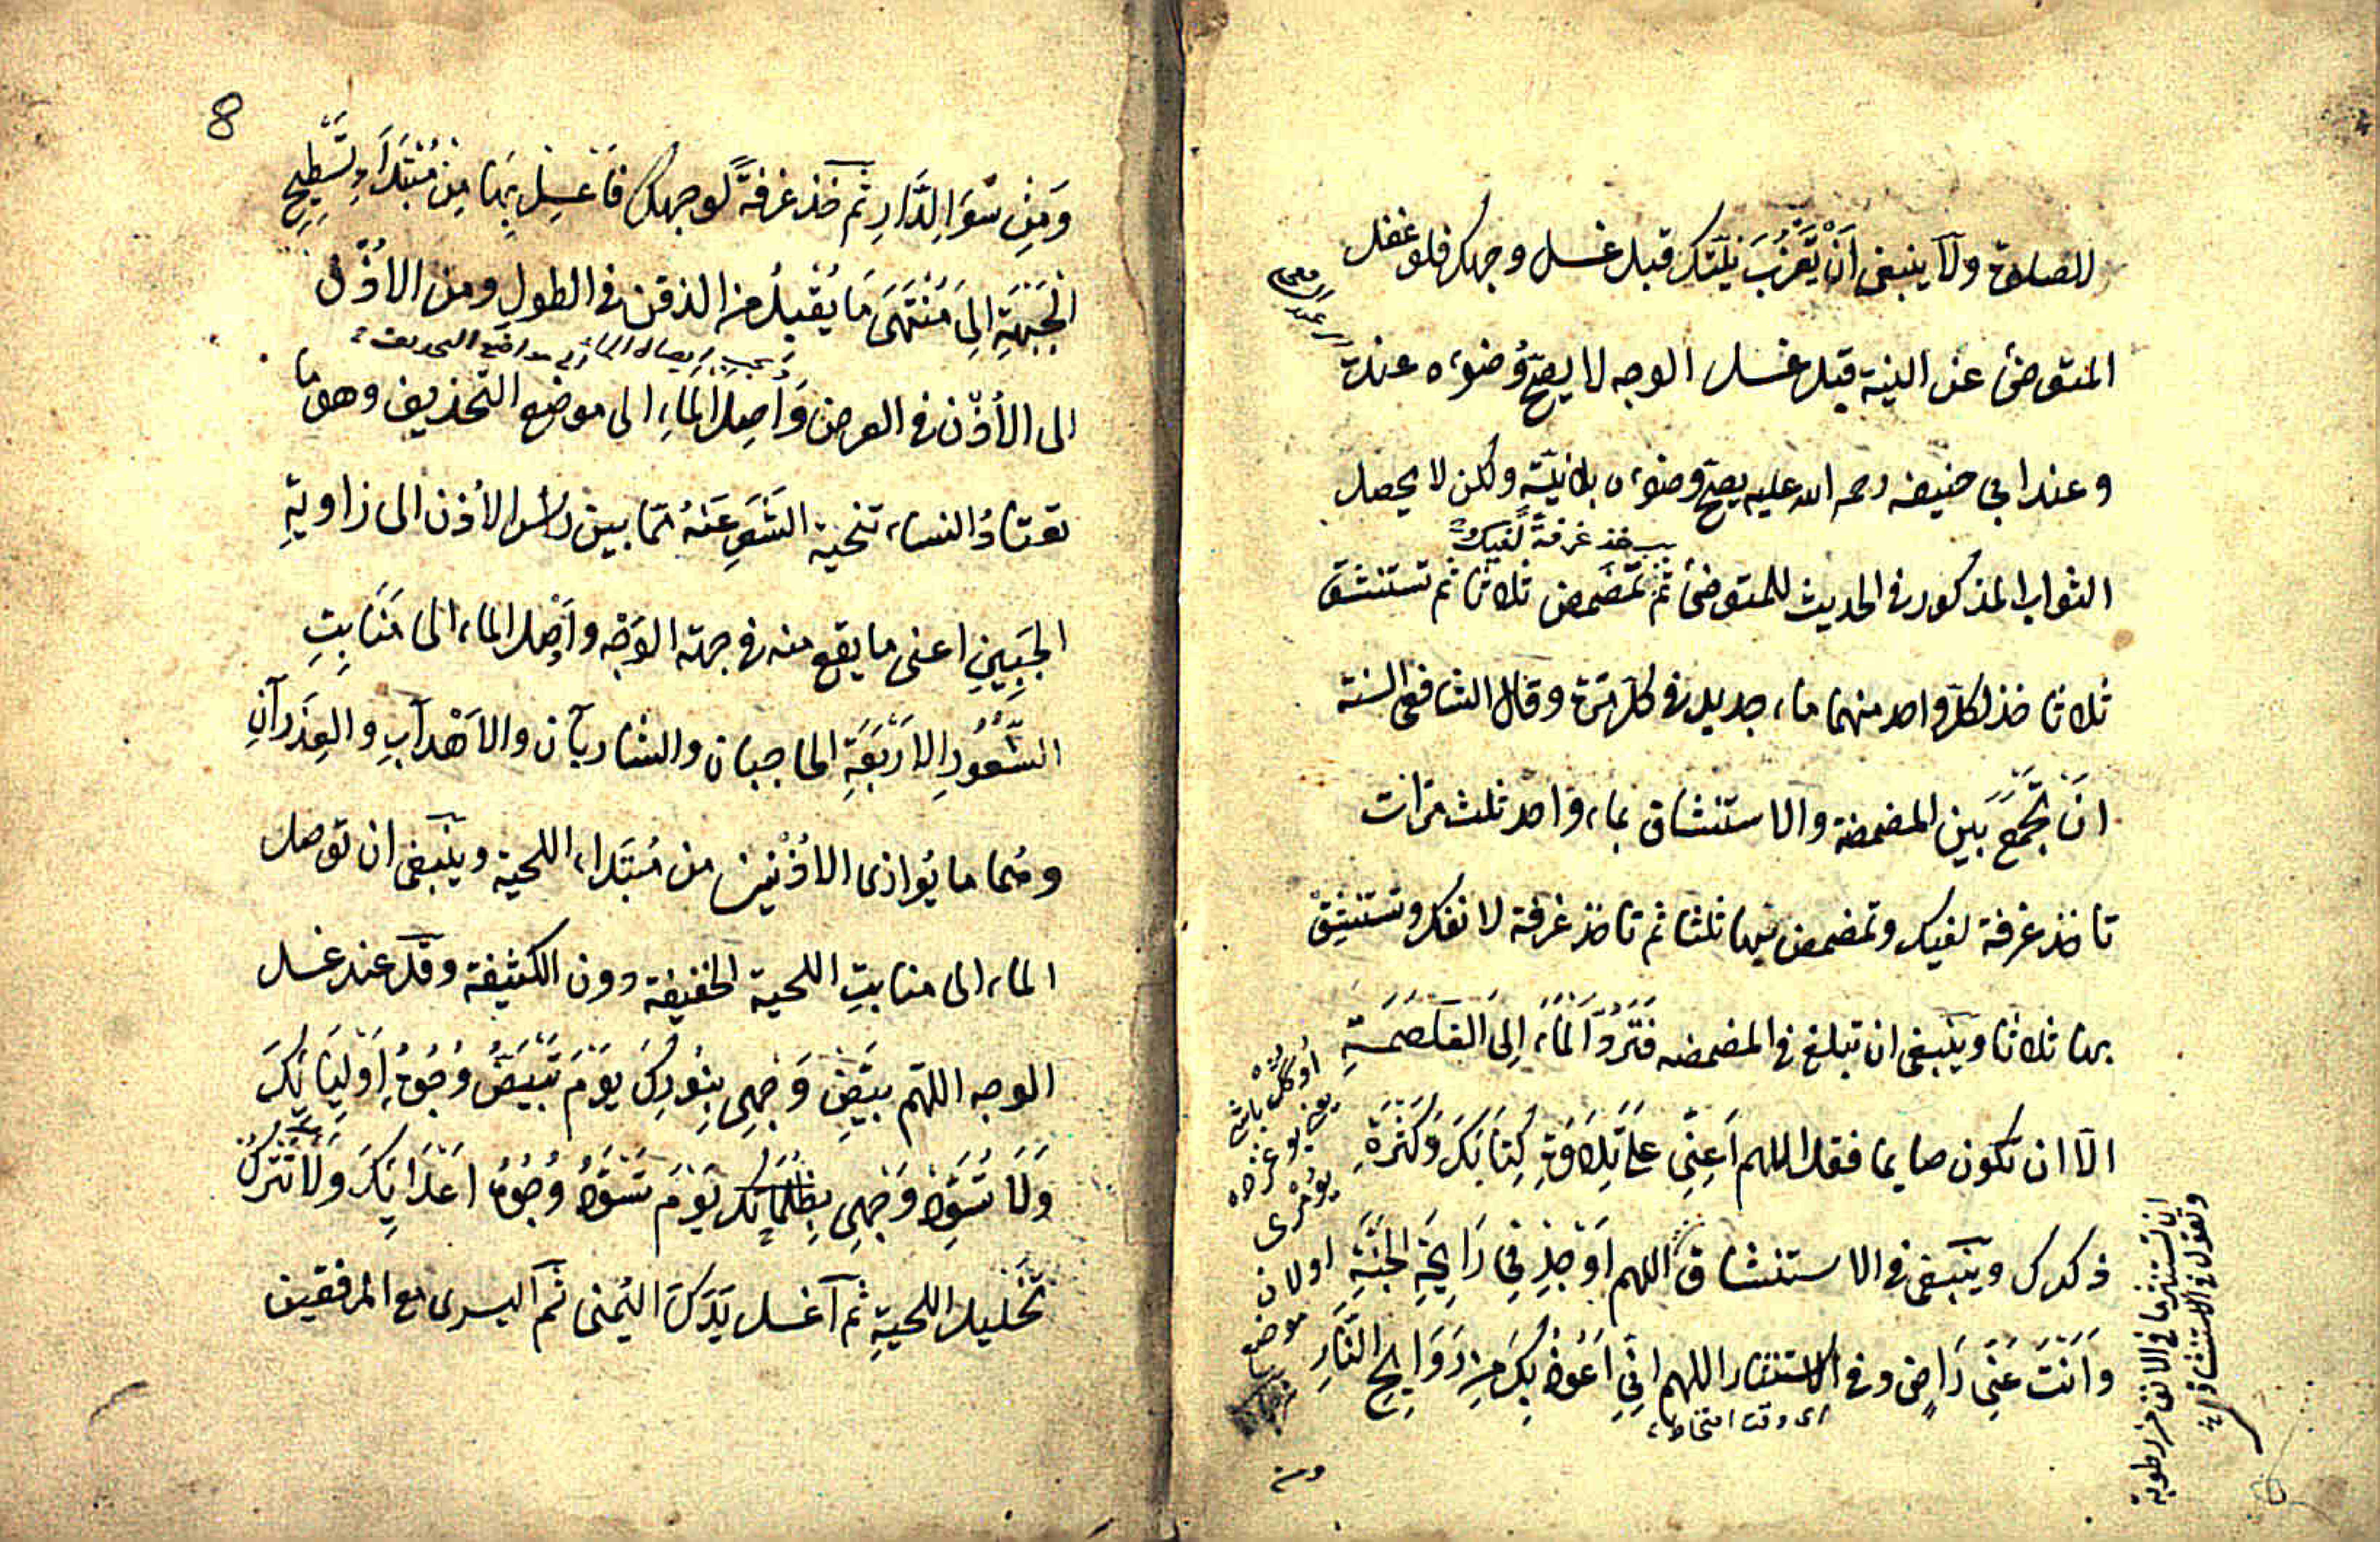 للصلوة ولا ينبغى ان تعزب نيتك قبل غسل وجهك فلو غفل
المتوضئ عن النية قبل غسل الوجه لا يصح وضوءه عندنا
وعند ابي حنيفه رحمه الله عليه يصح وضوءه بلا نيّة ولكن لا يحصل
خذ غرفةً لفيك
الثواب المذكور في الحديث للمتوضئ ثم تمضمض ثلاثا ثم تستنشق
ثلاثا خذ لكل واحد منهما ماء جديد في كل مرة وقال الشافعى السنة
ان تجمع بين المضمضة والاستنشاق بماء واحد ثلث مرات
تاخذ غرفة لفيك وتمضمض بها ثلثا ثم تاخذ غرفة لانفك وتستنشق
بها ثلاثا وينبغى ان تبلغ في المضمضه فَتَرُدَّ الماء اِلى الغلصمةِ
الّا ان تكون صايما فقل اللهم اَعِنِّي عَلَى تِلَاوَةِ كِتَابِكَ وَكَثْرَةِ
ذكرك وينبغى في الاستنشاق اللهم اَوْجِدْ لِي رَايِحَةِ الجَنَّةِ
وَاَنْتَ عَنِّي رَاضٍ وفي الاستنثار اللهم اِنِّي اَعُوذُ بِكَ مِنْ رَوَايِحِ النَّارِ
اى وقت امتخاط
ان تستنثر ما في الانف من رطوبة
وتقول في الاستنشاق
ومن
8
وَمِنْ سُوءِ الدَّارِ ثم خذ غرفةً لوجهك فاَغْسِلْ بِهَا مِنْ مُبْتَدَاءِ تَسْطِيحِ
الجَبْهَةِ اِلىَ مُنْتَهَى مَا يُقْبِلُ من الذقن في الطول ومن الاذن
ويجب ايصال الماء الى مواضع التحذيف
الى الأذن في العرض وَاَصِلِ الماءِ الى موضع التحذيف وهو ما
تعتادُ النساء تنحية الشَعْرِ عَنْهُ مما بين راس الأذن الى زاويةِ
الجَبِينِ اعنى ما يقع منه في جهة الوَجْه واَوْصل الماء الى مَنَابِتِ
الشُّعُورِ الاَرْبَعَةِ الحاجبان والشاربان والاَهْدَابِ والعِذَرَانِ
وهُما ما يُوازى الاُذْنَيْن من مُبْتَداء اللحية وينبغى ان توصل
الماء الى منابتِ اللحية الخفيفة دون الكثيفة وقل عند غسل
الوجه اللهم بَيِّضْ وَجْهِى بِنُورِكَ يَوْمَ تَبْيَضُّ وُجُوهُ اَوْلِيَائِكَ
وَلَا تُسَوِّدْ وَجْهِى بِظُلُمَاتِكَ يَوْمَ تَسْوَدُّ وُجُوهُ اَعْدَائِكَ وَلَا تَتْرُكْ
تَخْلِيلَ اللحيةِ ثم اَغسل يَدَكَ اليُمنى ثم اليسرى مع المرفقين